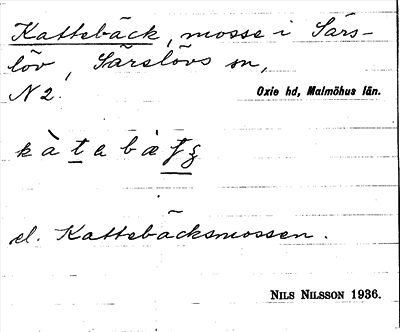 Kattebäck, mosse i Särs-
löv, Särslövs sn,
N 2. Oxie hd, Malmöhus län.
el. Kattebäcksmossen.
NILS NILSSON 1936.